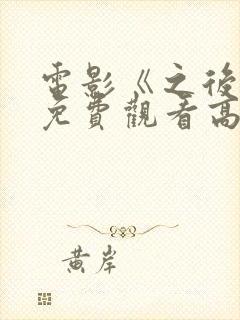 電影《之後
免費觀看高
黃岸